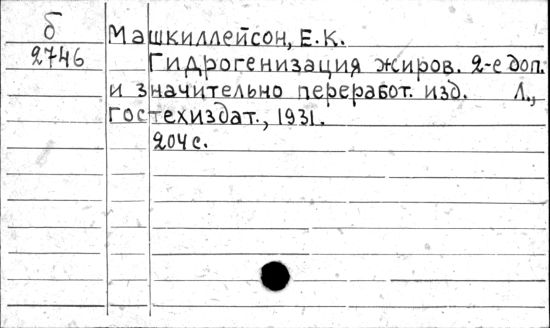 б
2746
Машкиллейсон, Е.К.
Гидрогенизация жиров. 2-е доп.
и значительно переработ. изд. Л.,
Гостехиздат., 1931.
204 с.